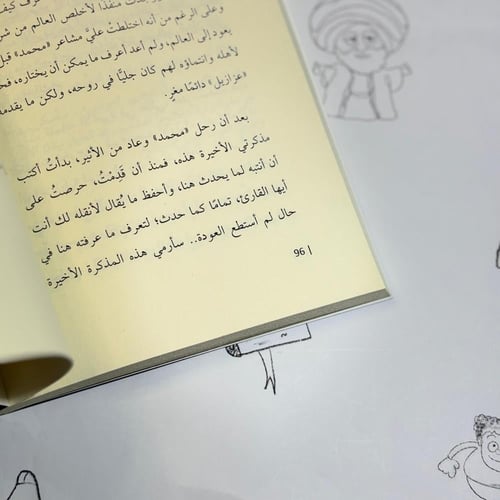 منفذًا لأخلص العالم من شر
وعلى الرغم من أنه اختلطتْ عليَّ مشاعر «محمد» قبل
يعود إلى العالم، ولم أعد أعرف ما يمكن أن يختاره، فح
لأهله وانتماؤه لهم كان جليًّا في روحه، ولكن ما يقدمه
«عزازيل» دائمًا مغرٍ.
بعد أن رحل «محمد» وعاد من الأثير، بدأتُ أكتب
مذكرتي الأخيرة هذه، فمنذ أن قَدِمْتُ، حرصتُ على
أن أنتبه لما يحدث هنا، وأحفظ ما يُقال لأنقله لك أنت
أيها القارئ، تمامًا كما حدث؛ لتعرف ما عرفته هنا في
حال لم أستطع العودة.. سأرمي هذه المذكرة الأخيرة
96 |